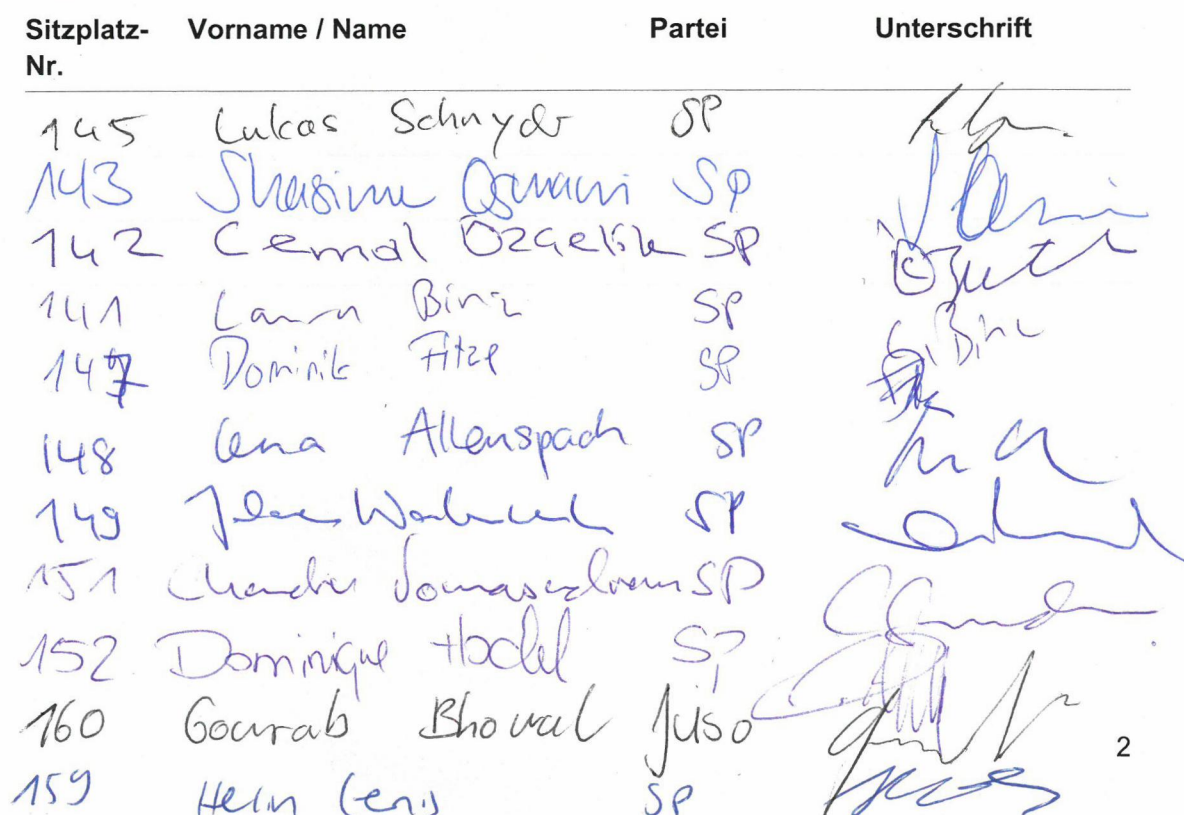 Sitzplatz- Vorname / Name Partei Unterschrift
Nr.
145 Lukas Schnyder SP
143 Shasime Osmani SP
142 Cemal Özçelik SP
141 Laura Binz SP
147 Dominik Fitze SP G. Binz
148 Lena Allenspach SP
149 SP
151 Chandru Somasundaram SP
152 Dominique Hodel SP
160 Gourab Bhowal Juso
2
159 Helin Genis SP